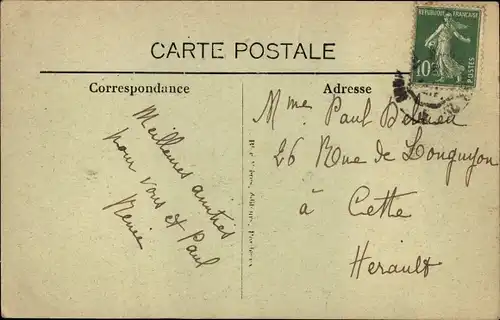 CARTE POSTALE
Correspondance
Adresse
REPUBLIQUE FRANÇAISE
10c
POSTES
Meilleures amitiés
pour vous et Paul
Renée
Mme Paul
26 Rue de Longuyon
à Cette
Herault